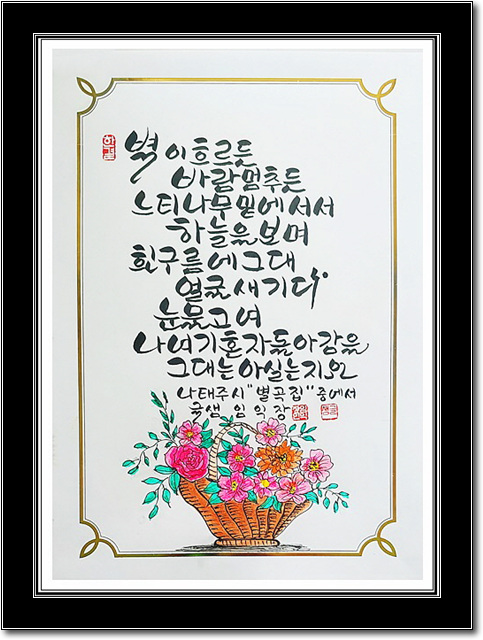 별이흐르듯
바람멈추듯
느티나무밑에서서
하늘을보며
흰구름에그대
얼굴새기다
눈물고여
나여기혼자돌아감을
그대는아실는지요
나태주시 "별곡집" 중에서
글샘 임익장